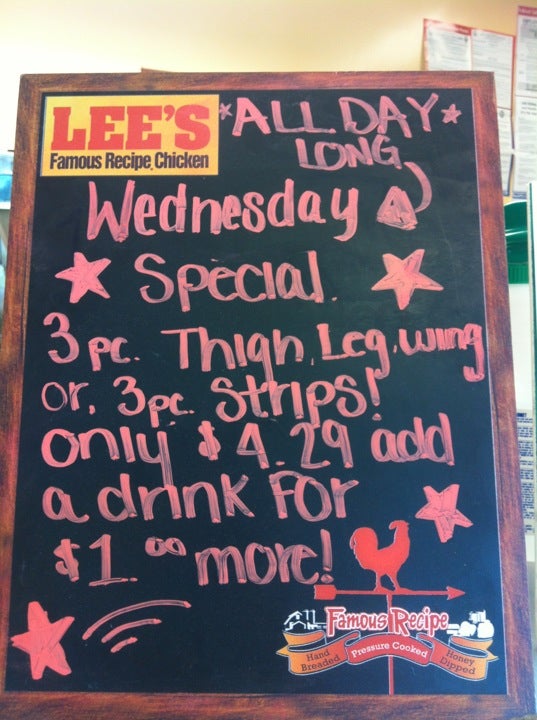 LEE'S
Famous Recipe Chicken
*ALL DAY*
LONG
Wednesday
Special.
3 pc. Thigh, Leg, wing
or, 3 pc. Strips!
only $4.29 add
a drink For
$1.00 more!
Famous Recipe
Hand Breaded
Pressure Cooked
Honey Dipped